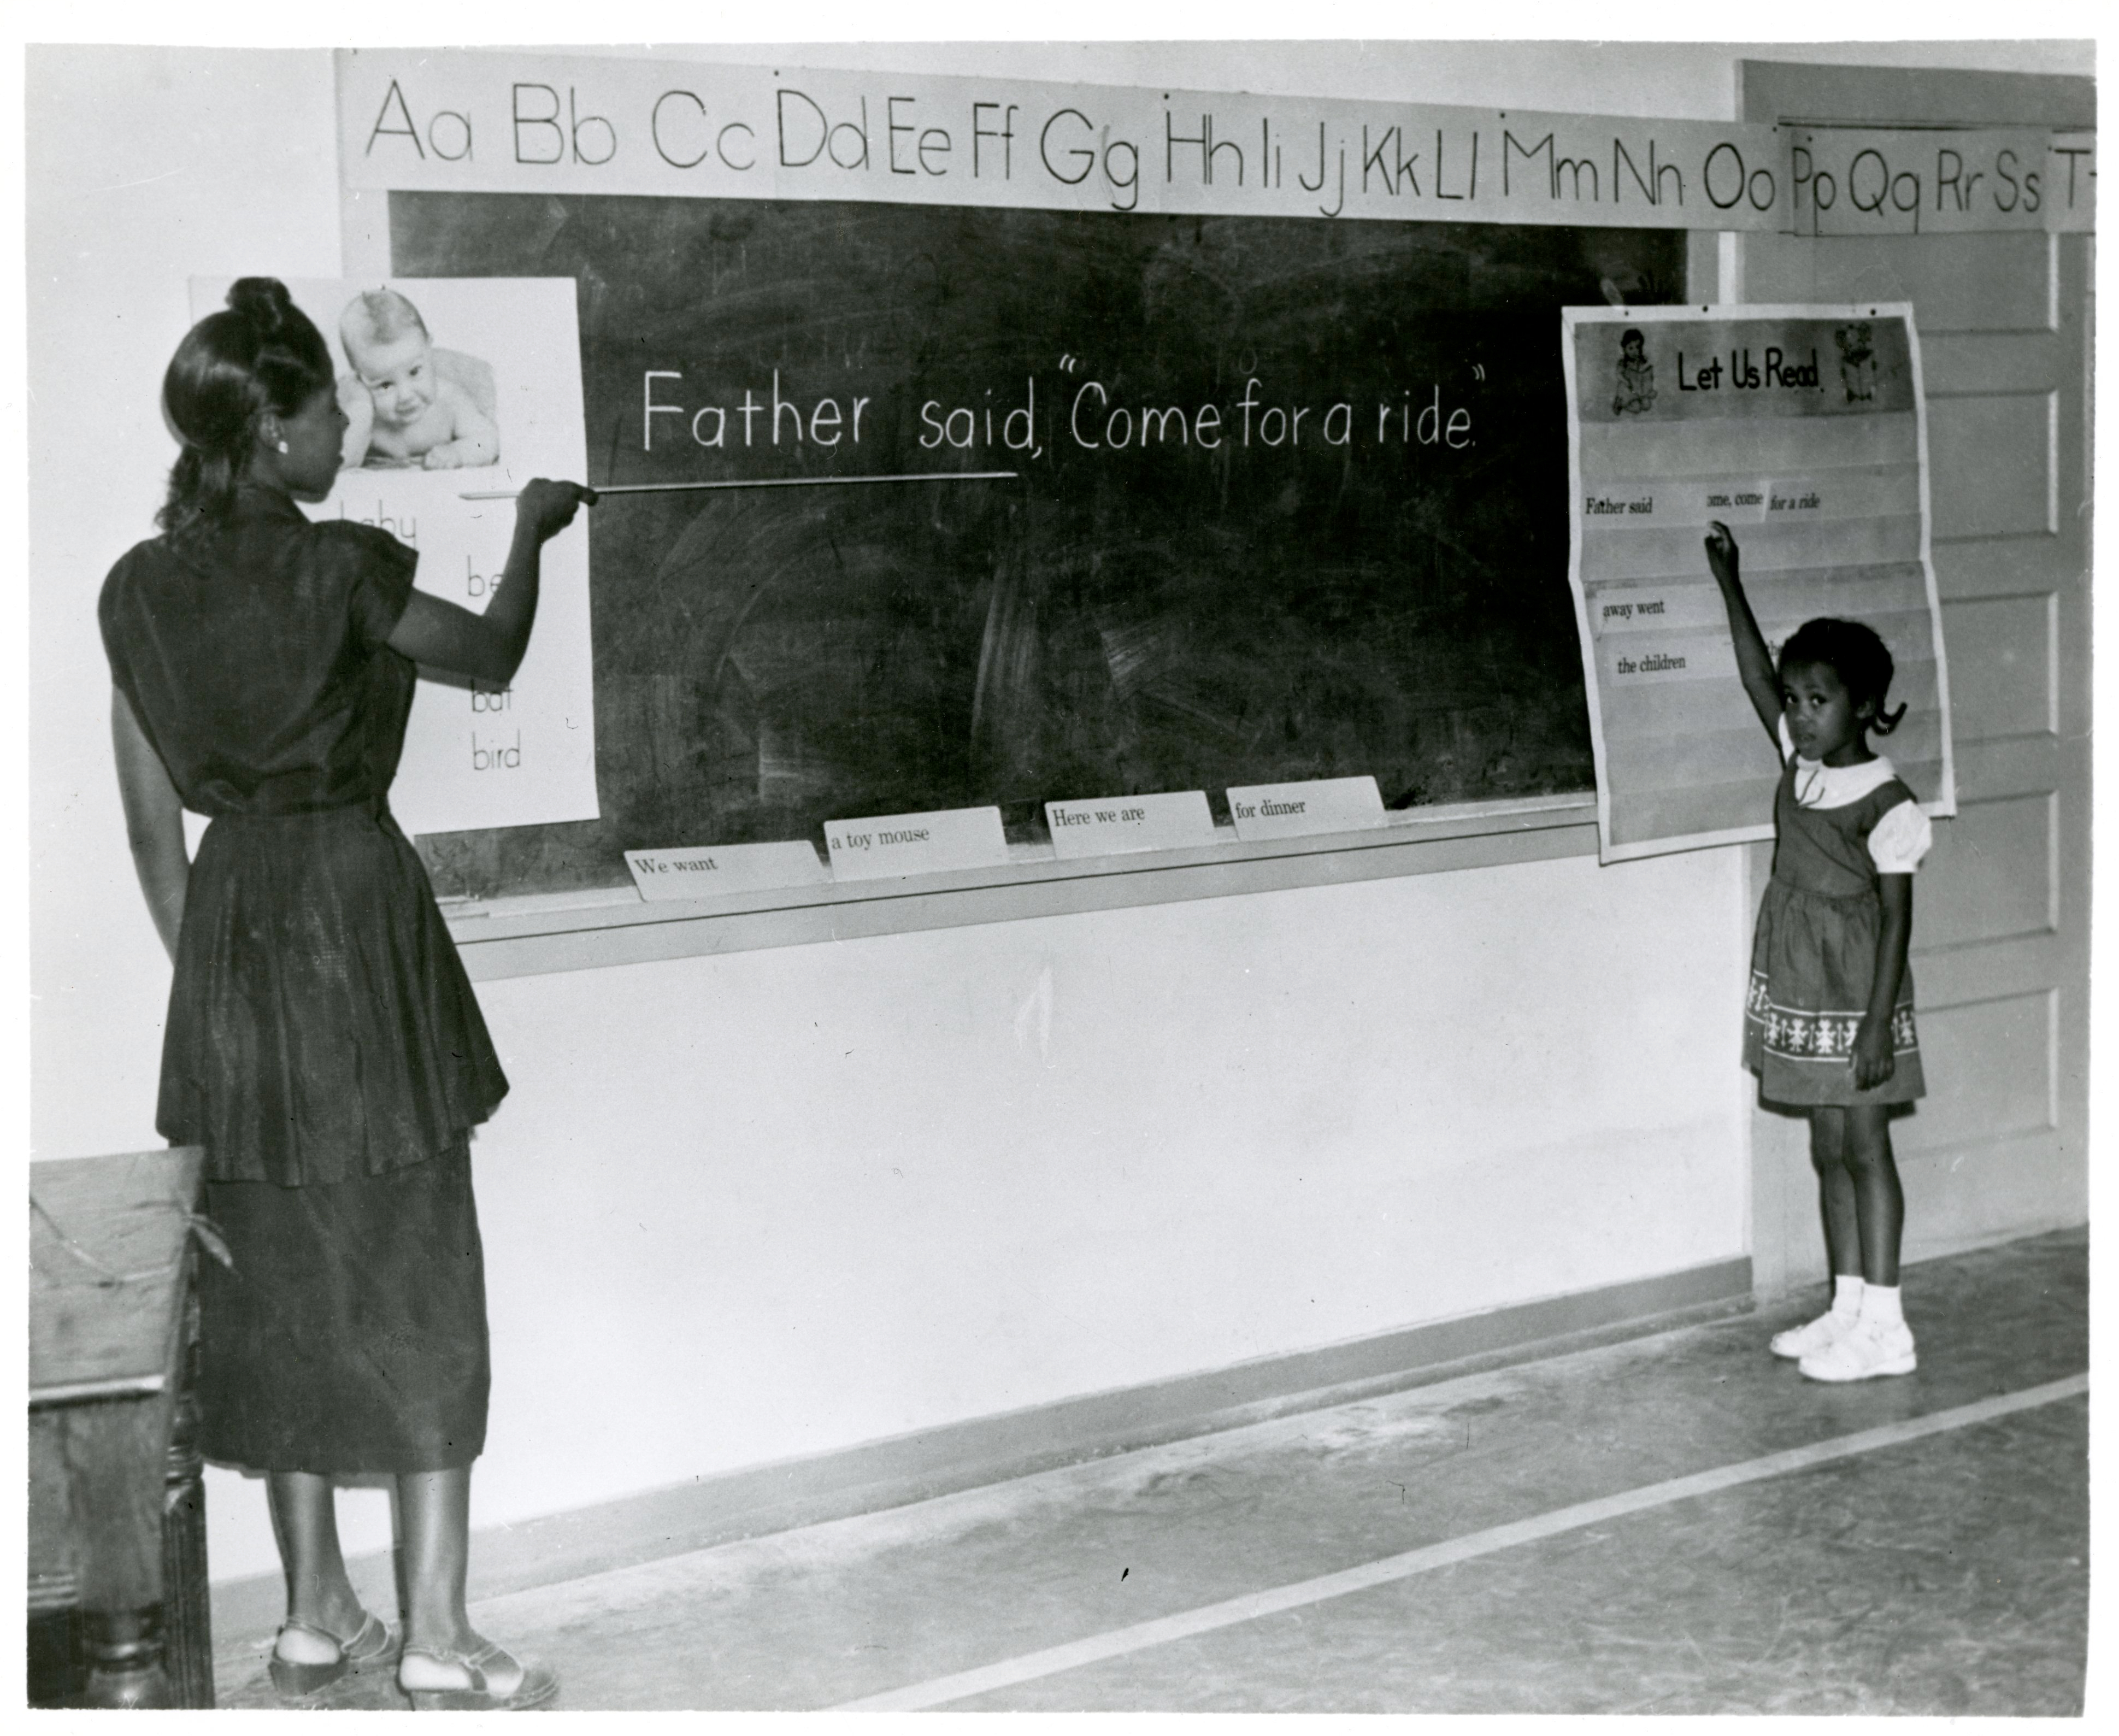 Aa Bb Cc Dd Ee Ff Gg Hh Ii Jj Kk Ll Mm Nn Oo Pp Qq Rr Ss T
Father said, "Come for a ride."
baby
be
bat
bird
We want
a toy mouse
Here we are
for dinner
Let Us Read
Father said ome, come for a ride
away went
the children